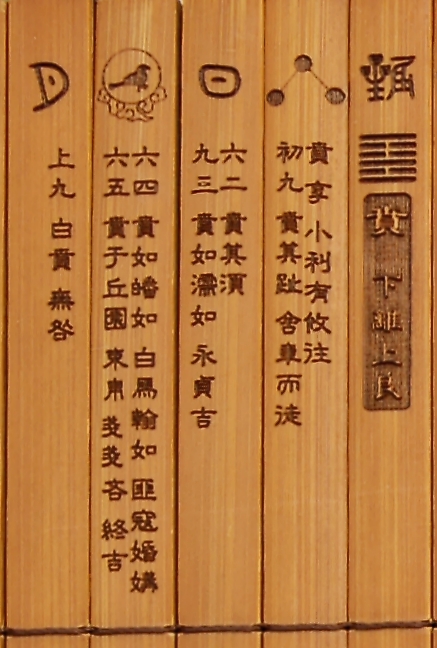 賁 下離上艮
賁 享 小利有攸往
初九 賁其趾 舍車而徒
六二 賁其湏
九三 賁如濡如 永貞吉
六四 賁如皤如 白馬翰如 匪寇婚媾
六五 賁于丘園 束帛戔戔 吝 終吉
上九 白賁 無咎